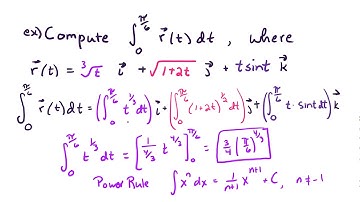 ex) Compute ∫₀^{π/6} r⃗(t) dt , where
r⃗(t) = ∛t i⃗ + √(1+2t) j⃗ + t sint k⃗
∫₀^{π/6} r⃗(t) dt = (∫₀^{π/6} t^{1/3} dt) i⃗ + (∫₀^{π/6} (1+2t)^{1/2} dt) j⃗ + (∫₀^{π/6} t · sint dt) k⃗
∫₀^{π/6} t^{1/3} dt = [1/(4/3) t^{4/3}]₀^{π/6} = 3/4 (π/6)^{4/3}
Power Rule ∫ xⁿ dx = 1/(n+1) x^{n+1} + C, n ≠ -1